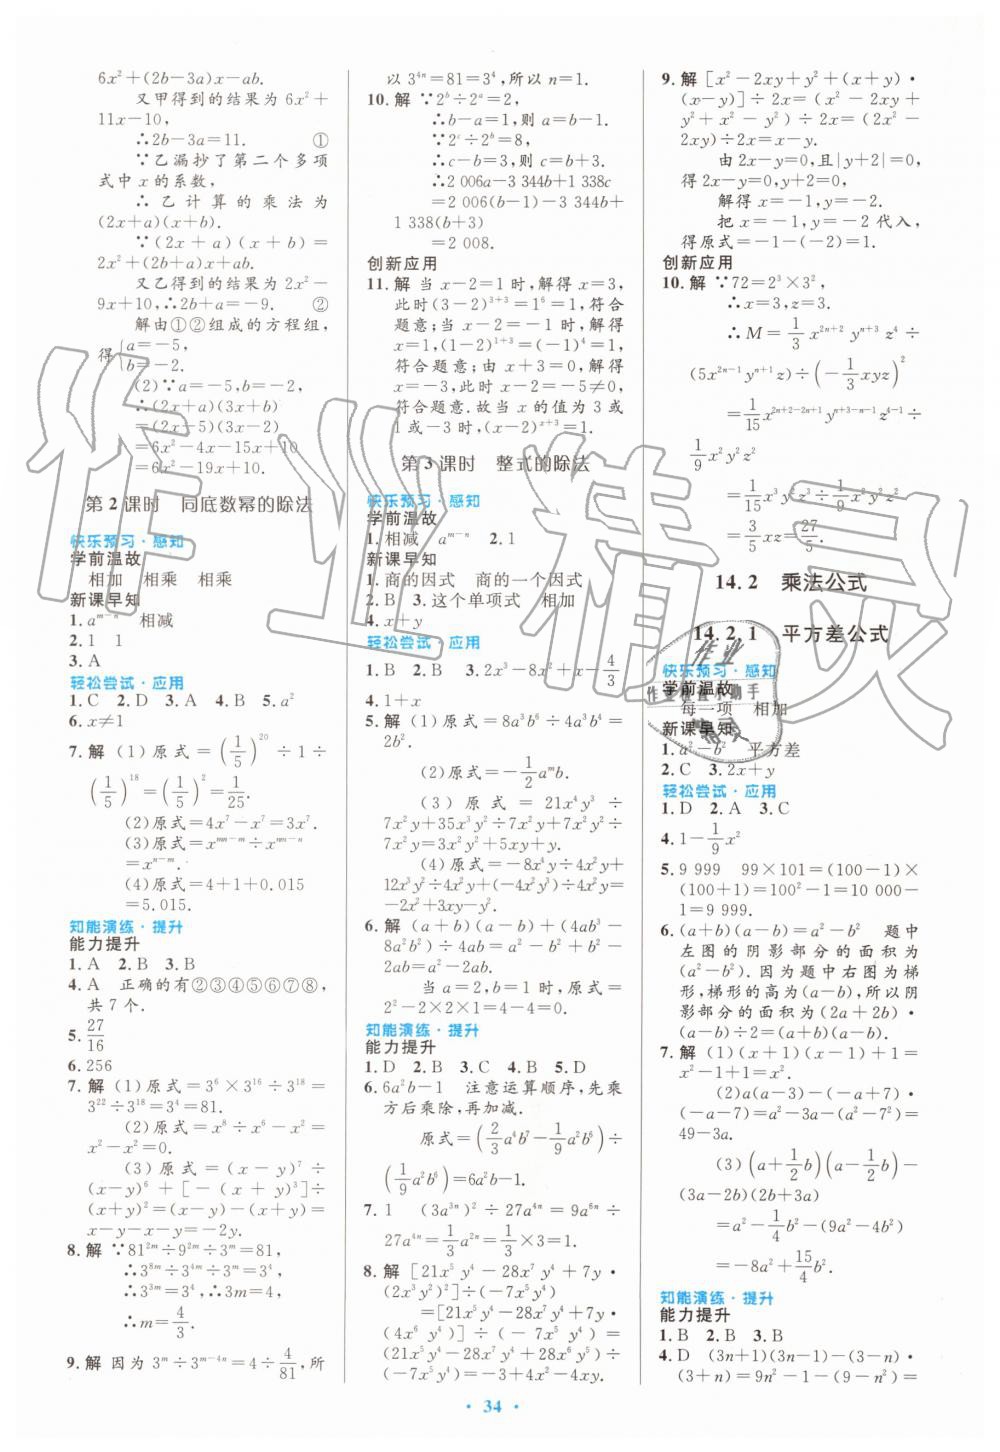 6x²+(2b-3a)x-ab.
又甲得到的结果为 6x²+
11x-10,
∴2b-3a=11. ①
∵乙漏抄了第二个多项
式中 x 的系数,
∴乙计算的乘法为
(2x+a)(x+b).
∵(2x+a)(x+b)=
2x²+(2b+a)x+ab.
又乙得到的结果为 2x²-
9x+10,∴2b+a=-9. ②
解由①②组成的方程组,
得{a=-5,
b=-2.
(2)∵a=-5,b=-2,
∴(2x+a)(3x+b)
=(2x-5)(3x-2)
=6x²-4x-15x+10
=6x²-19x+10.
第 2 课时 同底数幂的除法
快乐预习·感知
学前温故
相加 相乘 相乘
新课早知
1. aᵐ⁻ⁿ 相减
2. 1 1
3. A
轻松尝试·应用
1. C 2. D 3. A 4. A 5. a²
6. x≠1
7. 解 (1)原式=(1/5)²⁰÷1÷
(1/5)¹⁸=(1/5)²=1/25.
(2)原式=4x⁷-x⁷=3x⁷.
(3)原式=xᵐⁿ⁻ᵐ÷xᵐⁿ⁻ⁿ
=xⁿ⁻ᵐ.
(4)原式=4+1+0.015
=5.015.
知能演练·提升
能力提升
1. A 2. B 3. B
4. A 正确的有②③④⑤⑥⑦⑧,
共 7 个.
5. 27/16
6. 256
7. 解 (1)原式=3⁶×3¹⁶÷3¹⁸=
3²²÷3¹⁸=3⁴=81.
(2)原式=x⁸÷x⁶-x=
x²-x.
(3)原式=(x-y)⁷÷
(x-y)⁶+[-(x+y)³]÷
(x+y)²=(x-y)-(x+y)=
x-y-x-y=-2y.
8. 解 ∵81²ᵐ÷9²ᵐ÷3ᵐ=81,
∴3⁸ᵐ÷3⁴ᵐ÷3ᵐ=3⁴,
∴3³ᵐ=3⁴,∴3m=4,
∴m=4/3.
9. 解 因为 3ᵐ÷3ᵐ⁻⁴ⁿ=4÷4/81,所
以 3⁴ⁿ=81=3⁴,所以 n=1.
10. 解 ∵2ᵇ÷2ᵃ=2,
∴b-a=1,则 a=b-1.
∵2ᶜ÷2ᵇ=8,
∴c-b=3,则 c=b+3.
∴2 006a-3 344b+1 338c
=2 006(b-1)-3 344b+
1 338(b+3)
=2 008.
创新应用
11. 解 当 x-2=1 时,解得 x=3,
此时(3-2)³⁺³=1⁶=1,符合
题意;当 x-2=-1 时,解得
x=1,(1-2)¹⁺³=(-1)⁴=1,
符合题意;由 x+3=0,解得
x=-3,此时 x-2=-5≠0,
符合题意.故当 x 的值为 3 或
1 或-3 时,(x-2)ˣ⁺³=1.
第 3 课时 整式的除法
快乐预习·感知
学前温故
1. 相减 aᵐ⁻ⁿ 2. 1
新课早知
1. 商的因式 商的一个因式
2. B 3. 这个单项式 相加
4. x+y
轻松尝试·应用
1. B 2. B 3. 2x³-8x²+x-4/3
4. 1+x
5. 解 (1)原式=8a³b⁶÷4a³b⁴=
2b².
(2)原式=-1/2aᵐb.
(3)原式=21x⁴y³÷
7x²y+35x³y²÷7x²y+7x²y²÷
7x²y=3x²y²+5xy+y.
(4)原式=-8x⁴y÷4x²y+
12x³y²÷4x²y+(-4x²y³)÷4x²y=
-2x²+3xy-y².
6. 解 (a+b)(a-b)+(4ab³-
8a²b²)÷4ab=a²-b²+b²-
2ab=a²-2ab.
当 a=2,b=1 时,原式=
2²-2×2×1=4-4=0.
知能演练·提升
能力提升
1. D 2. B 3. C 4. B 5. D
6. 6a²b-1 注意运算顺序,先乘
方后乘除,再加减.
原式=(2/3a⁴b⁷-1/9a²b⁶)÷
(1/9a²b⁶)=6a²b-1.
7. 1 (3a³ⁿ)²÷27a⁴ⁿ=9a⁶ⁿ÷
27a⁴ⁿ=1/3a²ⁿ=1/3×3=1.
8. 解 [21x⁵y⁴-28x⁷y⁴+7y·
(2x³y²)²]÷(-7x⁵y⁴)
=[21x⁵y⁴-28x⁷y⁴+7y·
(4x⁶y⁴)]÷(-7x⁵y⁴)=
(21x⁵y⁴-28x⁷y⁴+28x⁶y⁵)÷
(-7x⁵y⁴)=-3+4x²-4xy.
9. 解 [x²-2xy+y²+(x+y)·
(x-y)]÷2x=(x²-2xy+
y²+x²-y²)÷2x=(2x²-
2xy)÷2x=x-y.
由 2x-y=0,且|y+2|=0,
得 2x-y=0,y+2=0,
解得 x=-1,y=-2.
把 x=-1,y=-2 代入,
得原式=-1-(-2)=1.
创新应用
10. 解 ∵72=2³×3²,
∴x=3,z=3.
∴M=1/3x²ⁿ⁺²yⁿ⁺³z⁴÷
(5x²ⁿ⁻¹yⁿ⁺¹z)÷(-1/3xyz)²
=1/15x²ⁿ⁺²⁻²ⁿ⁺¹yⁿ⁺³⁻ⁿ⁻¹z⁴⁻¹÷
1/9x²y²z²
=1/15x³y²z³÷1/9x²y²z²
=3/5xz=27/5.
14.2 乘法公式
14.2.1 平方差公式
快乐预习·感知
学前温故
每一项 相加
新课早知
1. a²-b² 平方差
2. C 3. 2x+y
轻松尝试·应用
1. D 2. A 3. C
4. 1-1/9x²
5. 9 999 99×101=(100-1)×
(100+1)=100²-1=10 000-
1=9 999.
6. (a+b)(a-b)=a²-b² 题中
左图的阴影部分的面积为
(a²-b²). 因为题中右图为梯
形,梯形的高为(a-b),所以阴
影部分的面积为(2a+2b)·
(a-b)÷2=(a+b)(a-b).
7. 解 (1)(x+1)(x-1)+1=
x²-1+1=x².
(2)a(a-3)-(-a+7)·
(-a-7)=a²-3a-(a²-7²)=
49-3a.
(3)(a+1/2b)(a-1/2b)-
(3a-2b)(3a+2b)
=a²-1/4b²-(9a²-4b²)
=-8a²+15/4b².
知能演练·提升
能力提升
1. B 2. B 3. B
4. D (3n+1)(3n-1)-(3-n)·
(3+n)=9n²-1-(9-n²)=
· 34 ·
作业精灵
作业
作业检查小助手
精灵